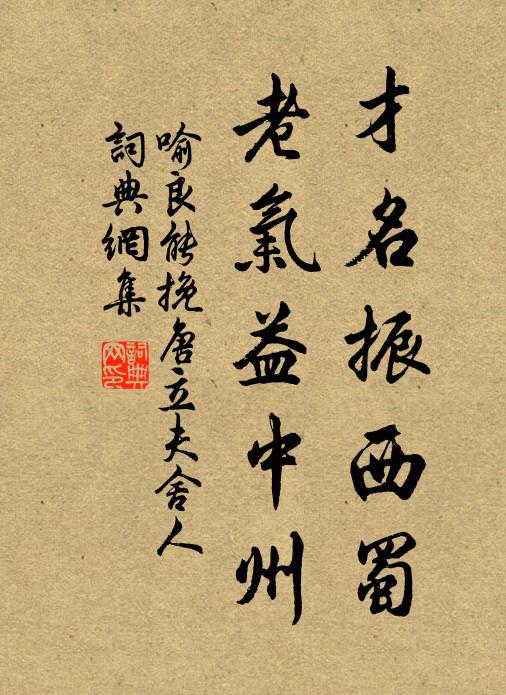 才名振西蜀
老氣益中州
喻良能挽唐立夫舍人
詞典網集
詞典
网印